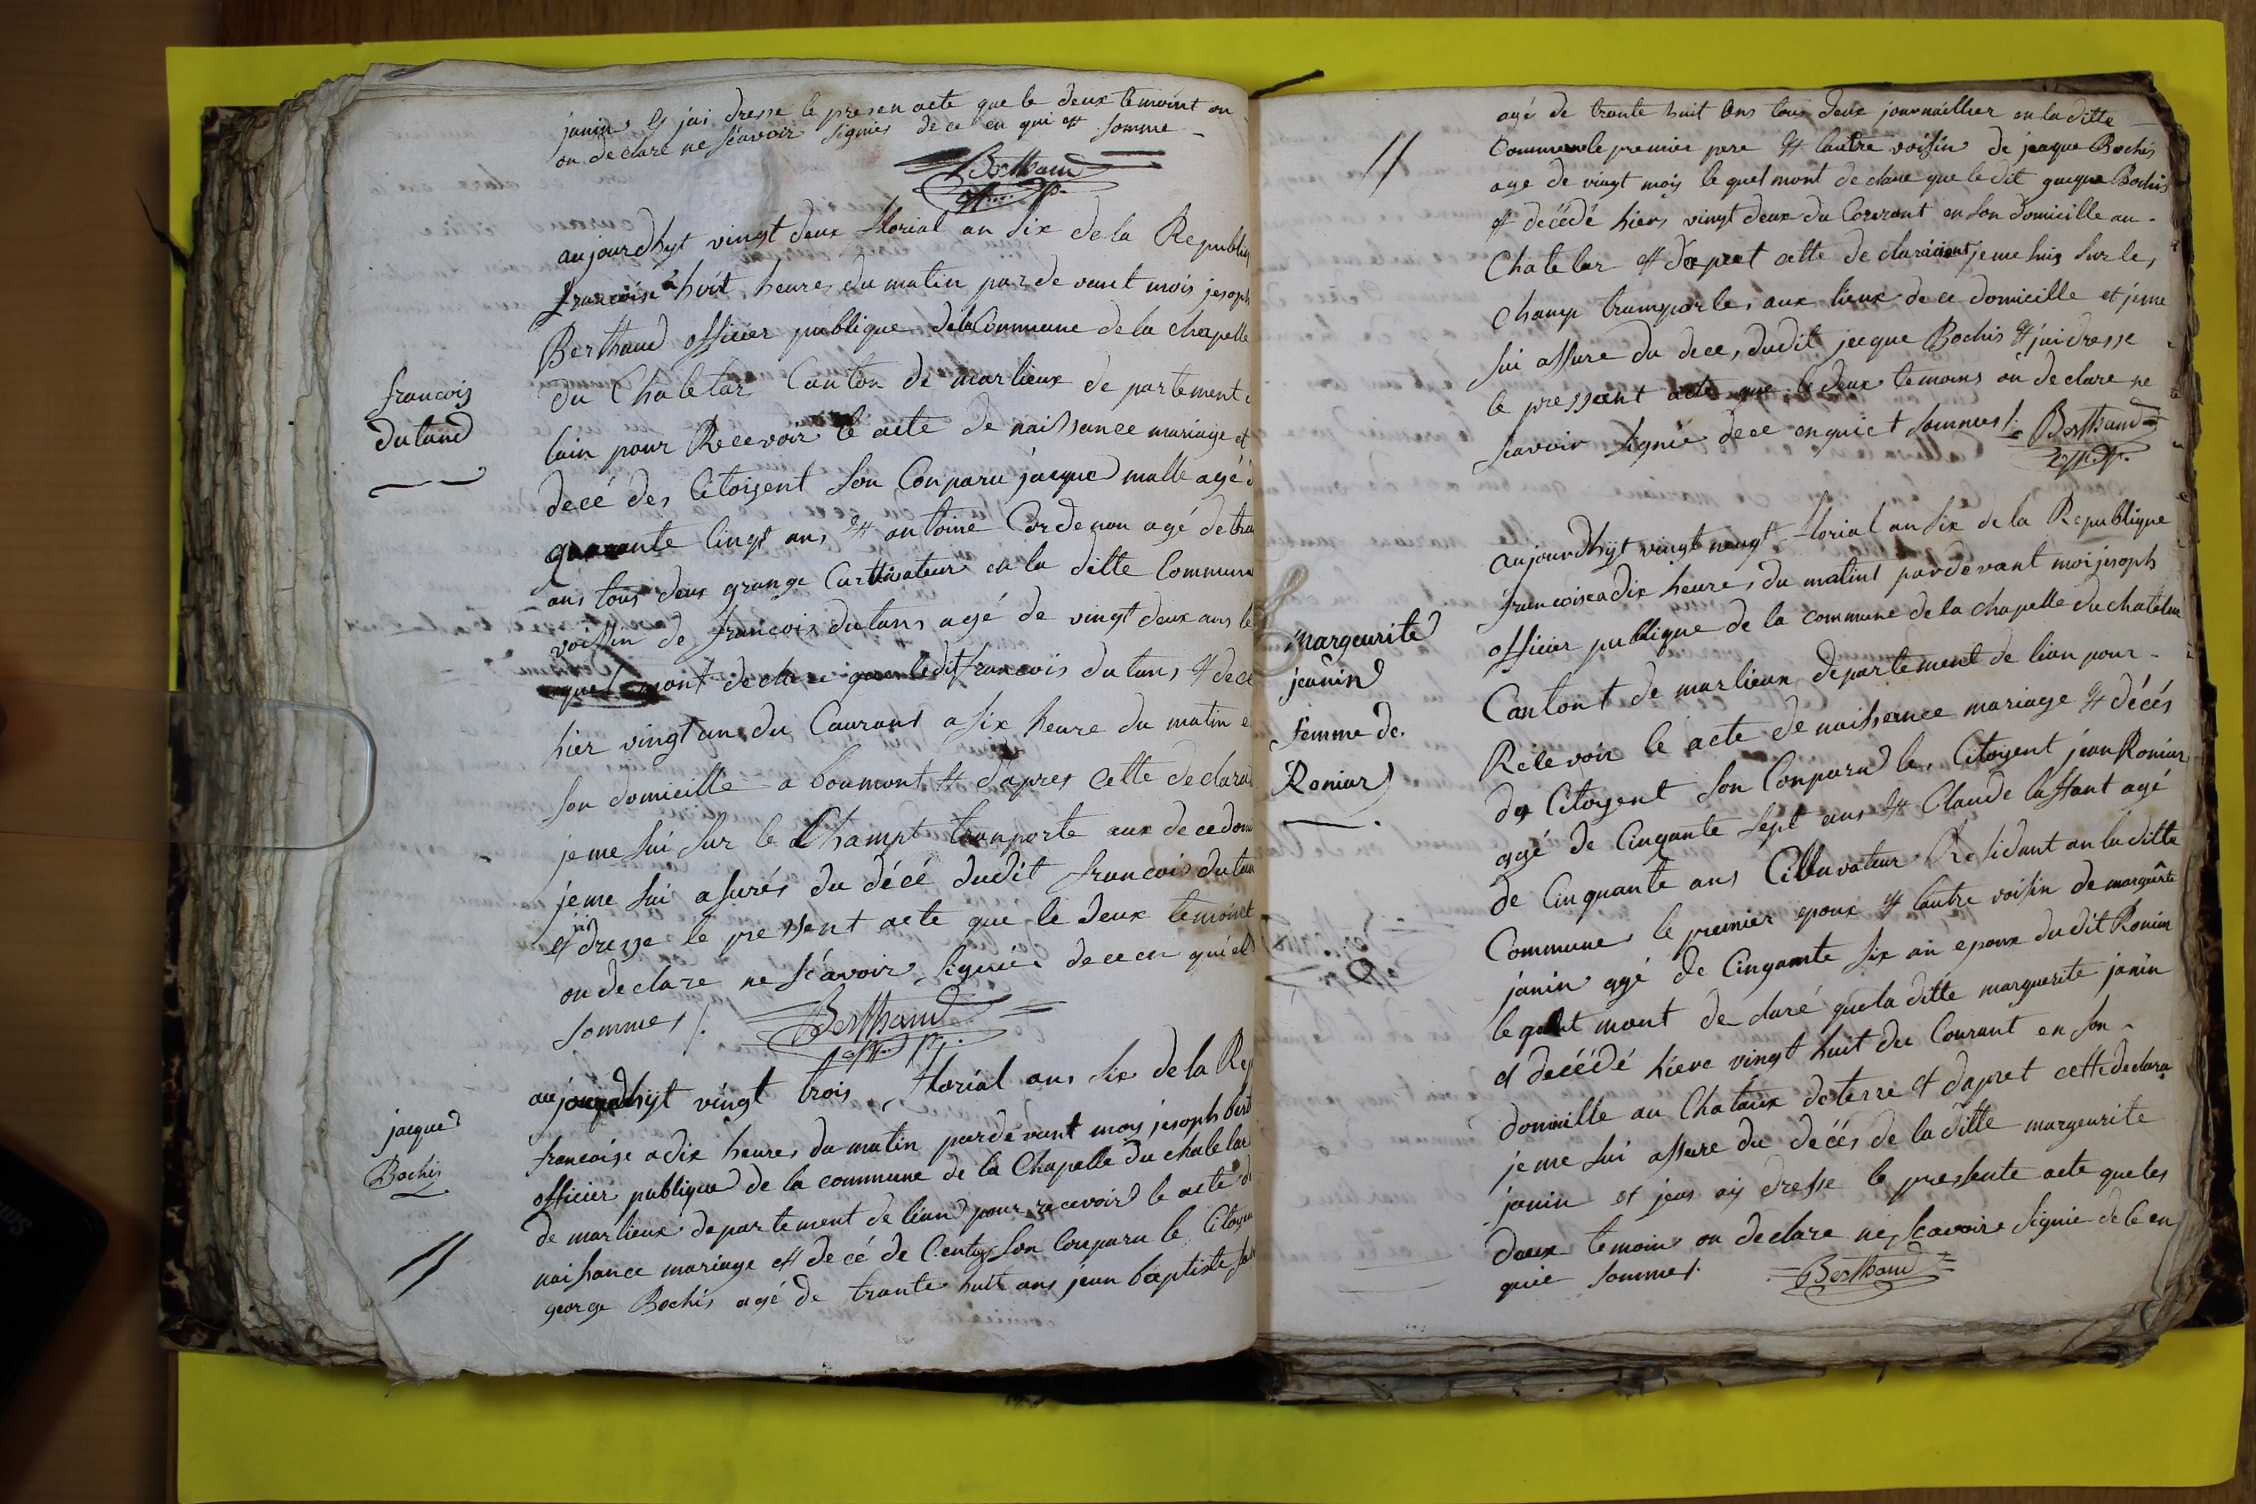 janin & jai dresse le presen acte que le deux temoint on
on declare ne scavoir signies de ce en qui est somme
Berthaud
off. p.
aujourdhyt vingt deux florial an six de la Republiq
francoise a huit heures du matin par de vant mois jesoph
Berthaud officier publique de la Commune de la chapelle
du Chatelar Canton de marlieux de partement
francois
dutand
lain pour Recevoir le acte de naissance mariage et
decé des Citoisent son Conparu jacque malle agé
quarante cinqt ans et antoine Cordenon agé de tra
ans tous deux grange Cultivateur en la ditte Commune
voissin de francois dutans agé de vingt deux ans le
quel mont declare que ledit francois dutans et dece
hier vingt un du Courant a six heure du matin e
son domicille a boumont et dapres cette declara
je me sui sur le Champt tranporte aux de ce dom
je me sui assurés du décé dudit francois dutan
et jai dresse le pressent acte que le deux temoint
on declare ne scavoir signiér de ce en qui et
sommes /.
Berthaud
off. p.
aujourdhyt vingt trois florial ans six de la Rep
jacque
Bochis
francoise a dix heures du matin par de vant moy jesoph bert
officier publique de la commune de la Chapelle du chatelar
de marlieux departement de lian pour recevoir le acte d
naissance mariage et decé de Centys son Conparu le Citoyen
george Bochis agé de trante huit ans jean baptiste
agé de trante huit ans tous deux journaillier en la ditte
Commune le premier pere et lautre voissin de jacque Bochis
age de vingt mois le quel mont declare que le dit jacque Bochis
et décédé hiers vingt deux du Courant en son domicille au
Chatelar et dapret cette declaraciont je me suis sur le,
champ transporter aux lieux de ce domicille et je me
sui assure du dece, dudit jacque Bochis et jai dresse
le pressent acte que le deux temoins on declare ne
scavoir signié de ce en qui et sommes /. Berthaud
off. p.
aujourdhyt vingt neuft florial an six de la Republique
francoise a dix heures du matint par de vant moi jesoph
officier publique de la commune de la chapelle du chatelar
margeurite
janin
femme de
Roniar
Cantont de marlieux departement de lian pour
Relevoir le acte de naissance mariage et décés
des Citoyent son Conparu le Citoyent jean Roniar
agé de Cinqante sept ans et Claude lassant agé
de Cinquante ans Cilluvateur Residant an la ditte
Commune le premier epoux et lautre voisin de margurite
janin agé de Cinqante six an epoux du dit Roniar
le quelt mont de claré que la ditte marguerite janin
et decédé hiere vingt huit du Courant en son
domicille au Chataux de terre et dapret cette declara
je me sui assure du decés de la ditte margeurite
janin et jeus aij dresse le pressente acte que les
deux temoins on declare ne scavoire signie de ce en
quie sommes.
Berthaud